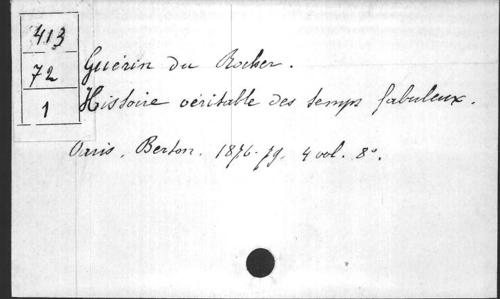 413
72
1
Guérin du Rocher.
Histoire véritable des temps fabuleux.
Paris, Berton. 1876-79. 4 vol. 8°.